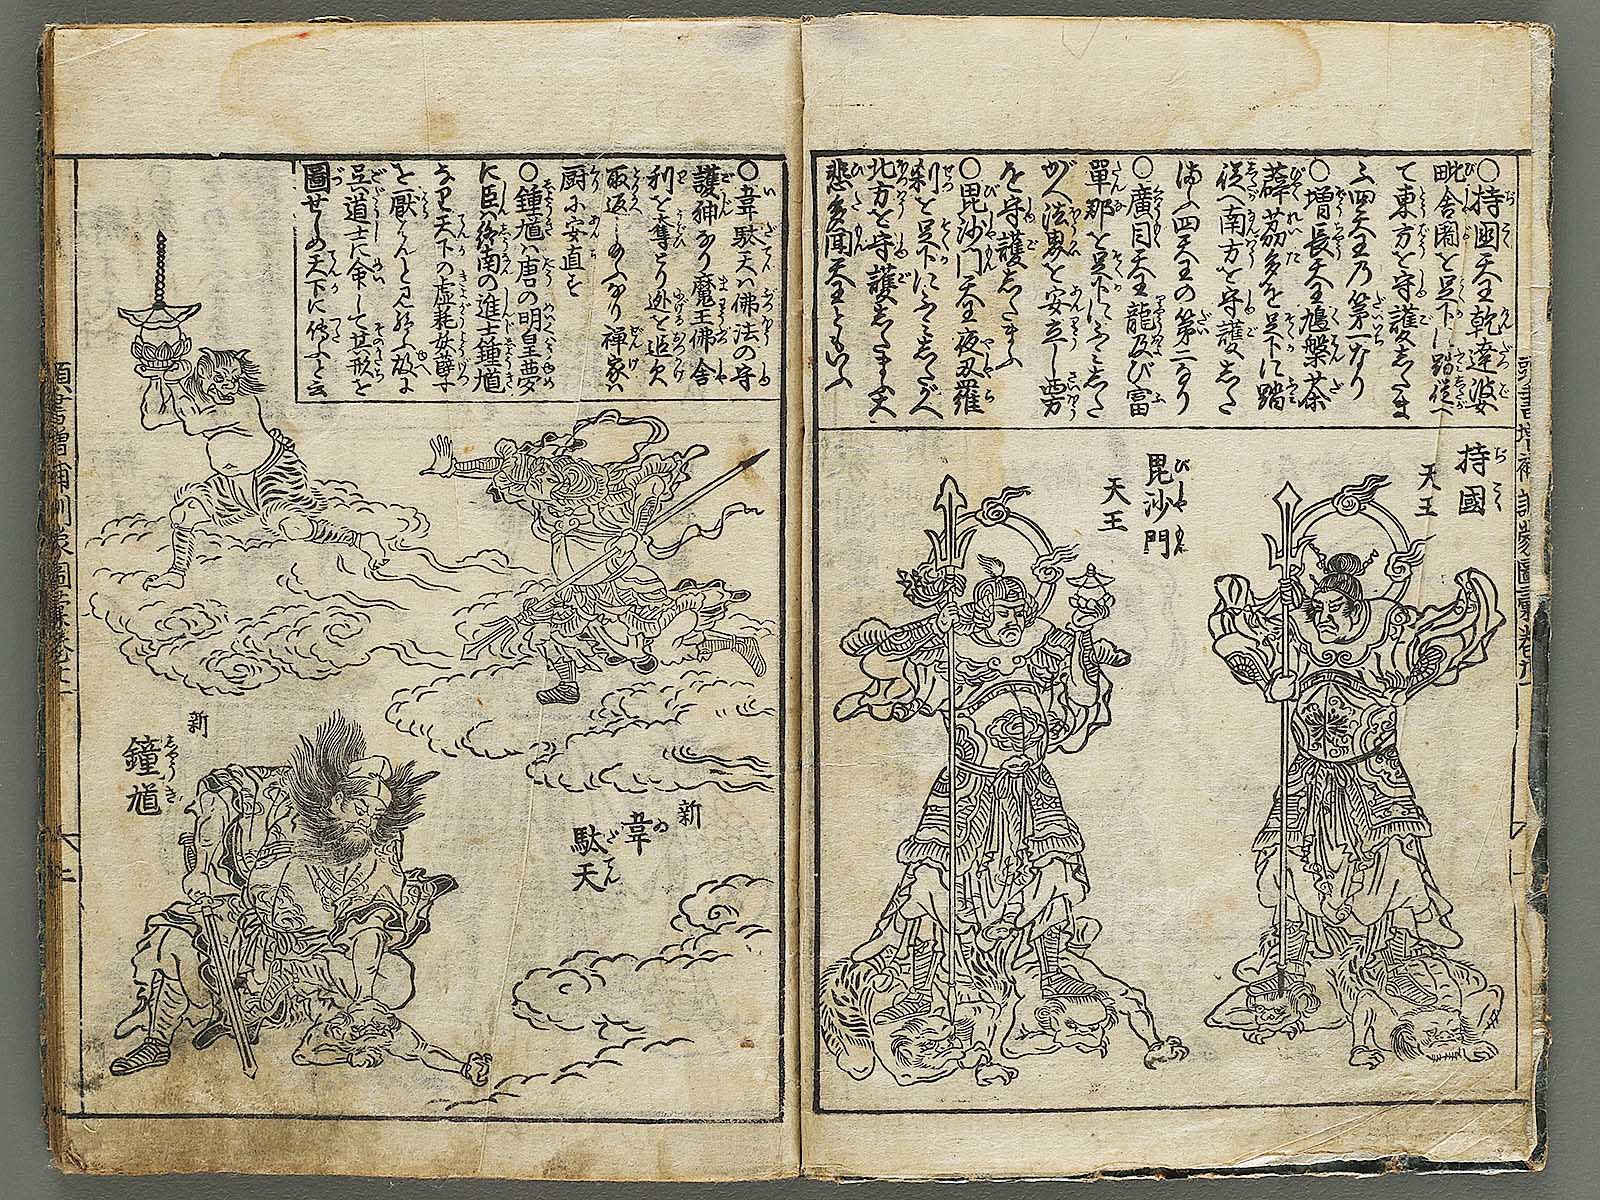 〇持國天王乾達波
毗舎闍を足下に踏従へ
て東方を守護したま
ふ四天王乃第一なり
〇増長天王鳩盤荼
薜茘多を足下に踏
従へ南方を守護し
給ふ四天王の第二なり
〇廣目天王龍及び富
單那を足下にふミした
がへ法界を安立し西方
を守護したまふ
〇毘沙門天王夜叉羅
刹を足下にふミしたがへ
北方を守護したまふ大
悲多聞天王ともいふ
持國
天王
毘沙門
天王
〇韋駄天ハ佛法の守
護神なり魔王佛舎
利を奪とり逊を追欠
取返しのふなり禅家ハ
厨に安直す
〇鍾馗ハ唐の明皇夢
に臣ハ終南の進士鍾馗
なり天下の虚耗妖孽
を厭はんと見給ふ故に
呉道士に命して其形を
圖せしめ天下に傳ふと云
新
韋
駄天
新
鐘馗
頭書増補訓蒙圖彙巻